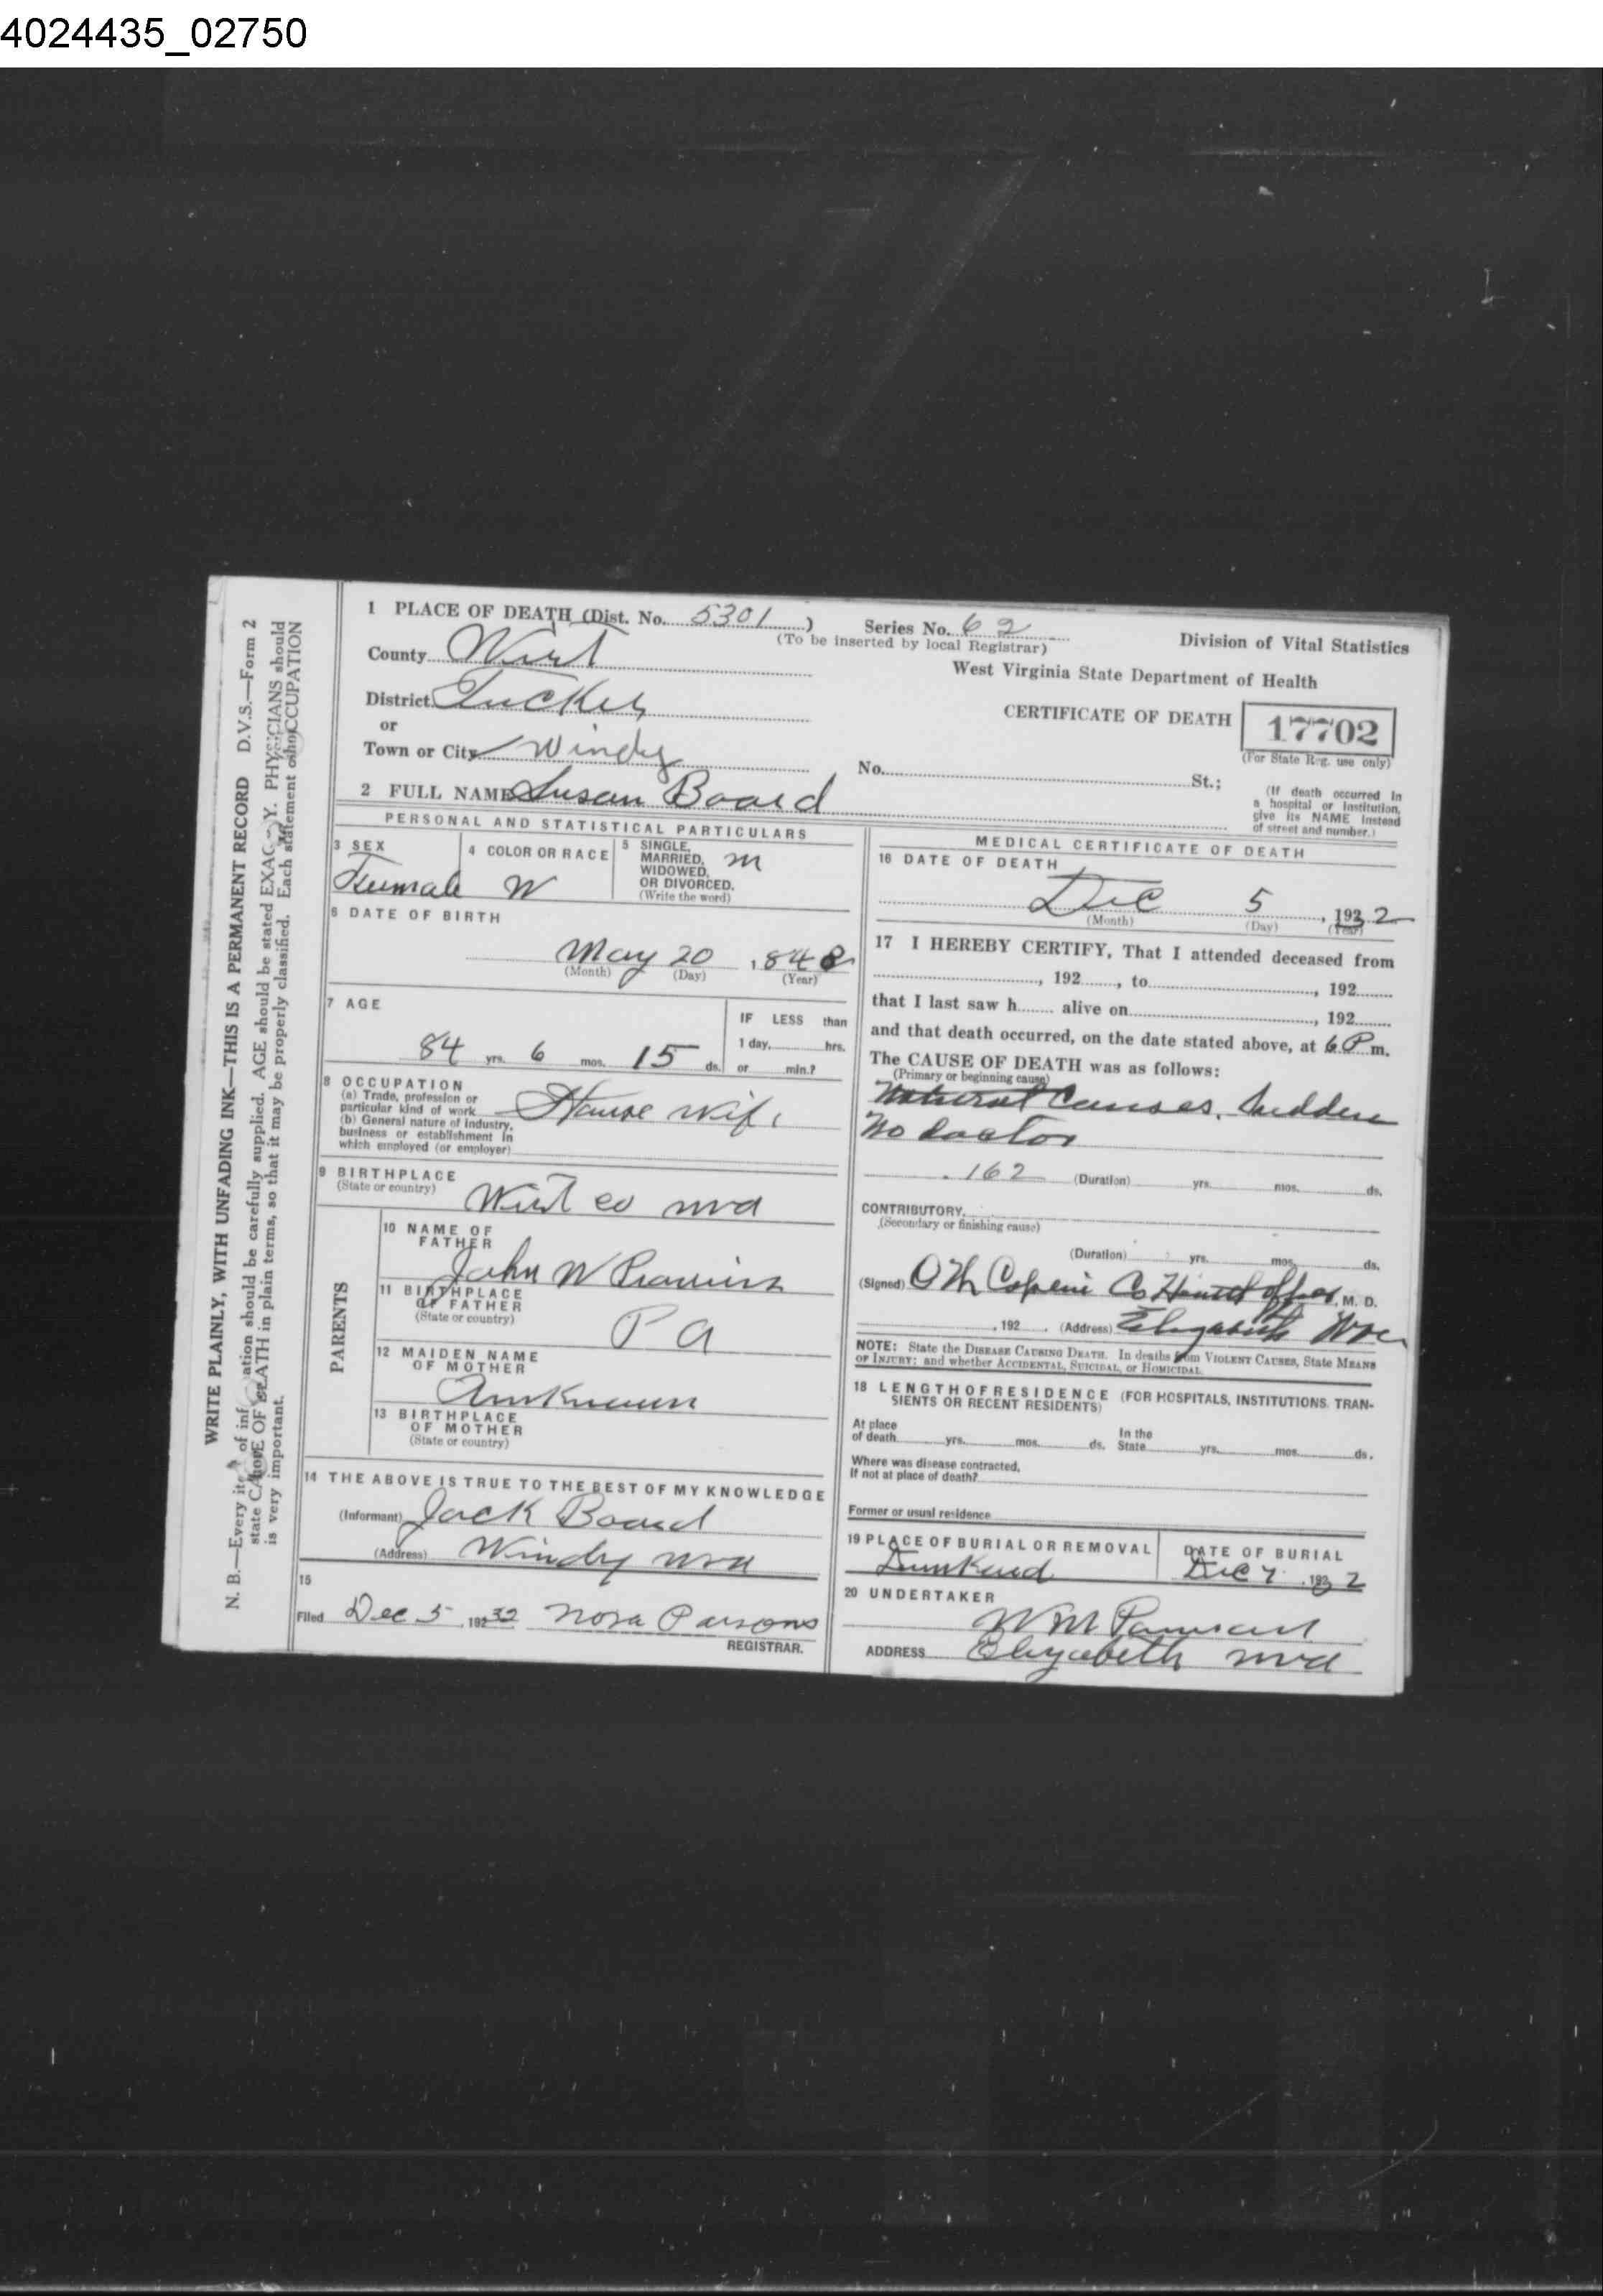 4024435_02750
WRITE PLAINLY, WITH UNFADING INK—THIS IS A PERMANENT RECORD D.V.S.—Form 2
N. B.—Every ite of inf ation should be carefully supplied. AGE should be stated EXAC Y. PHYSICIANS should
state CAUSE OF DEATH in plain terms, so that it may be properly classified. Each statement of OCCUPATION
is very important.
1 PLACE OF DEATH (Dist. No. 5301 ) Series No. 62
(To be inserted by local Registrar)
Division of Vital Statistics
County Wirt
West Virginia State Department of Health
District Tucker
or
CERTIFICATE OF DEATH 17702
(For State Reg. use only)
Town or City Windy
No. St.;
(If death occurred in
a hospital or institution,
give its NAME instead
of street and number.)
2 FULL NAME Susan Board
PERSONAL AND STATISTICAL PARTICULARS
3 SEX
Female
4 COLOR OR RACE
W
5 SINGLE,
MARRIED,
WIDOWED,
OR DIVORCED.
(Write the word)
m
6 DATE OF BIRTH
May 20 , 1848
(Month) (Day) (Year)
7 AGE
84 yrs. 6 mos. 15 ds.
IF LESS than
1 day, hrs.
or min.?
8 OCCUPATION
(a) Trade, profession or
particular kind of work House wife
(b) General nature of industry,
business or establishment in
which employed (or employer)
9 BIRTHPLACE
(State or country)
Wirt co wva
PARENTS
10 NAME OF
FATHER
John W
11 BIRTHPLACE
OF FATHER
(State or country)
Pa
12 MAIDEN NAME
OF MOTHER
Unknown
13 BIRTHPLACE
OF MOTHER
(State or country)
14 THE ABOVE IS TRUE TO THE BEST OF MY KNOWLEDGE
(Informant) Jack Board
(Address) Windy wva
15
Filed Dec 5 , 19232 Nora Parsons
REGISTRAR.
MEDICAL CERTIFICATE OF DEATH
16 DATE OF DEATH
Dec 5 , 1932
(Month) (Day) (Year)
17 I HEREBY CERTIFY, That I attended deceased from
, 192 , to , 192
that I last saw h alive on , 192
and that death occurred, on the date stated above, at 6 P m.
The CAUSE OF DEATH was as follows:
(Primary or beginning cause)
Natural Causes. Sudden
No Doctor
162 (Duration) yrs. mos. ds.
CONTRIBUTORY.
(Secondary or finishing cause)
(Duration) yrs. mos. ds.
(Signed) Co Health officer, M. D.
, 192 . (Address) Elizabeth Wva
NOTE: State the DISEASE CAUSING DEATH. In deaths from VIOLENT CAUSES, State MEANS
OF INJURY; and whether ACCIDENTAL, SUICIDAL, or HOMICIDAL.
18 LENGTH OF RESIDENCE (FOR HOSPITALS, INSTITUTIONS, TRAN-
SIENTS OR RECENT RESIDENTS)
At place
of death yrs. mos. ds.
In the
State yrs. mos. ds.
Where was disease contracted,
if not at place of death?
Former or usual residence
19 PLACE OF BURIAL OR REMOVAL
DATE OF BURIAL
Dec 7 , 1932
20 UNDERTAKER
ADDRESS Elizabeth wva